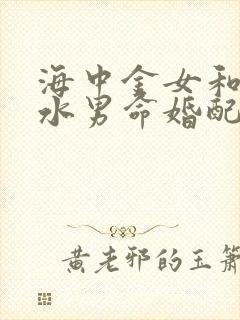 海中金女和
水男命婚配
黄老邪的玉箫